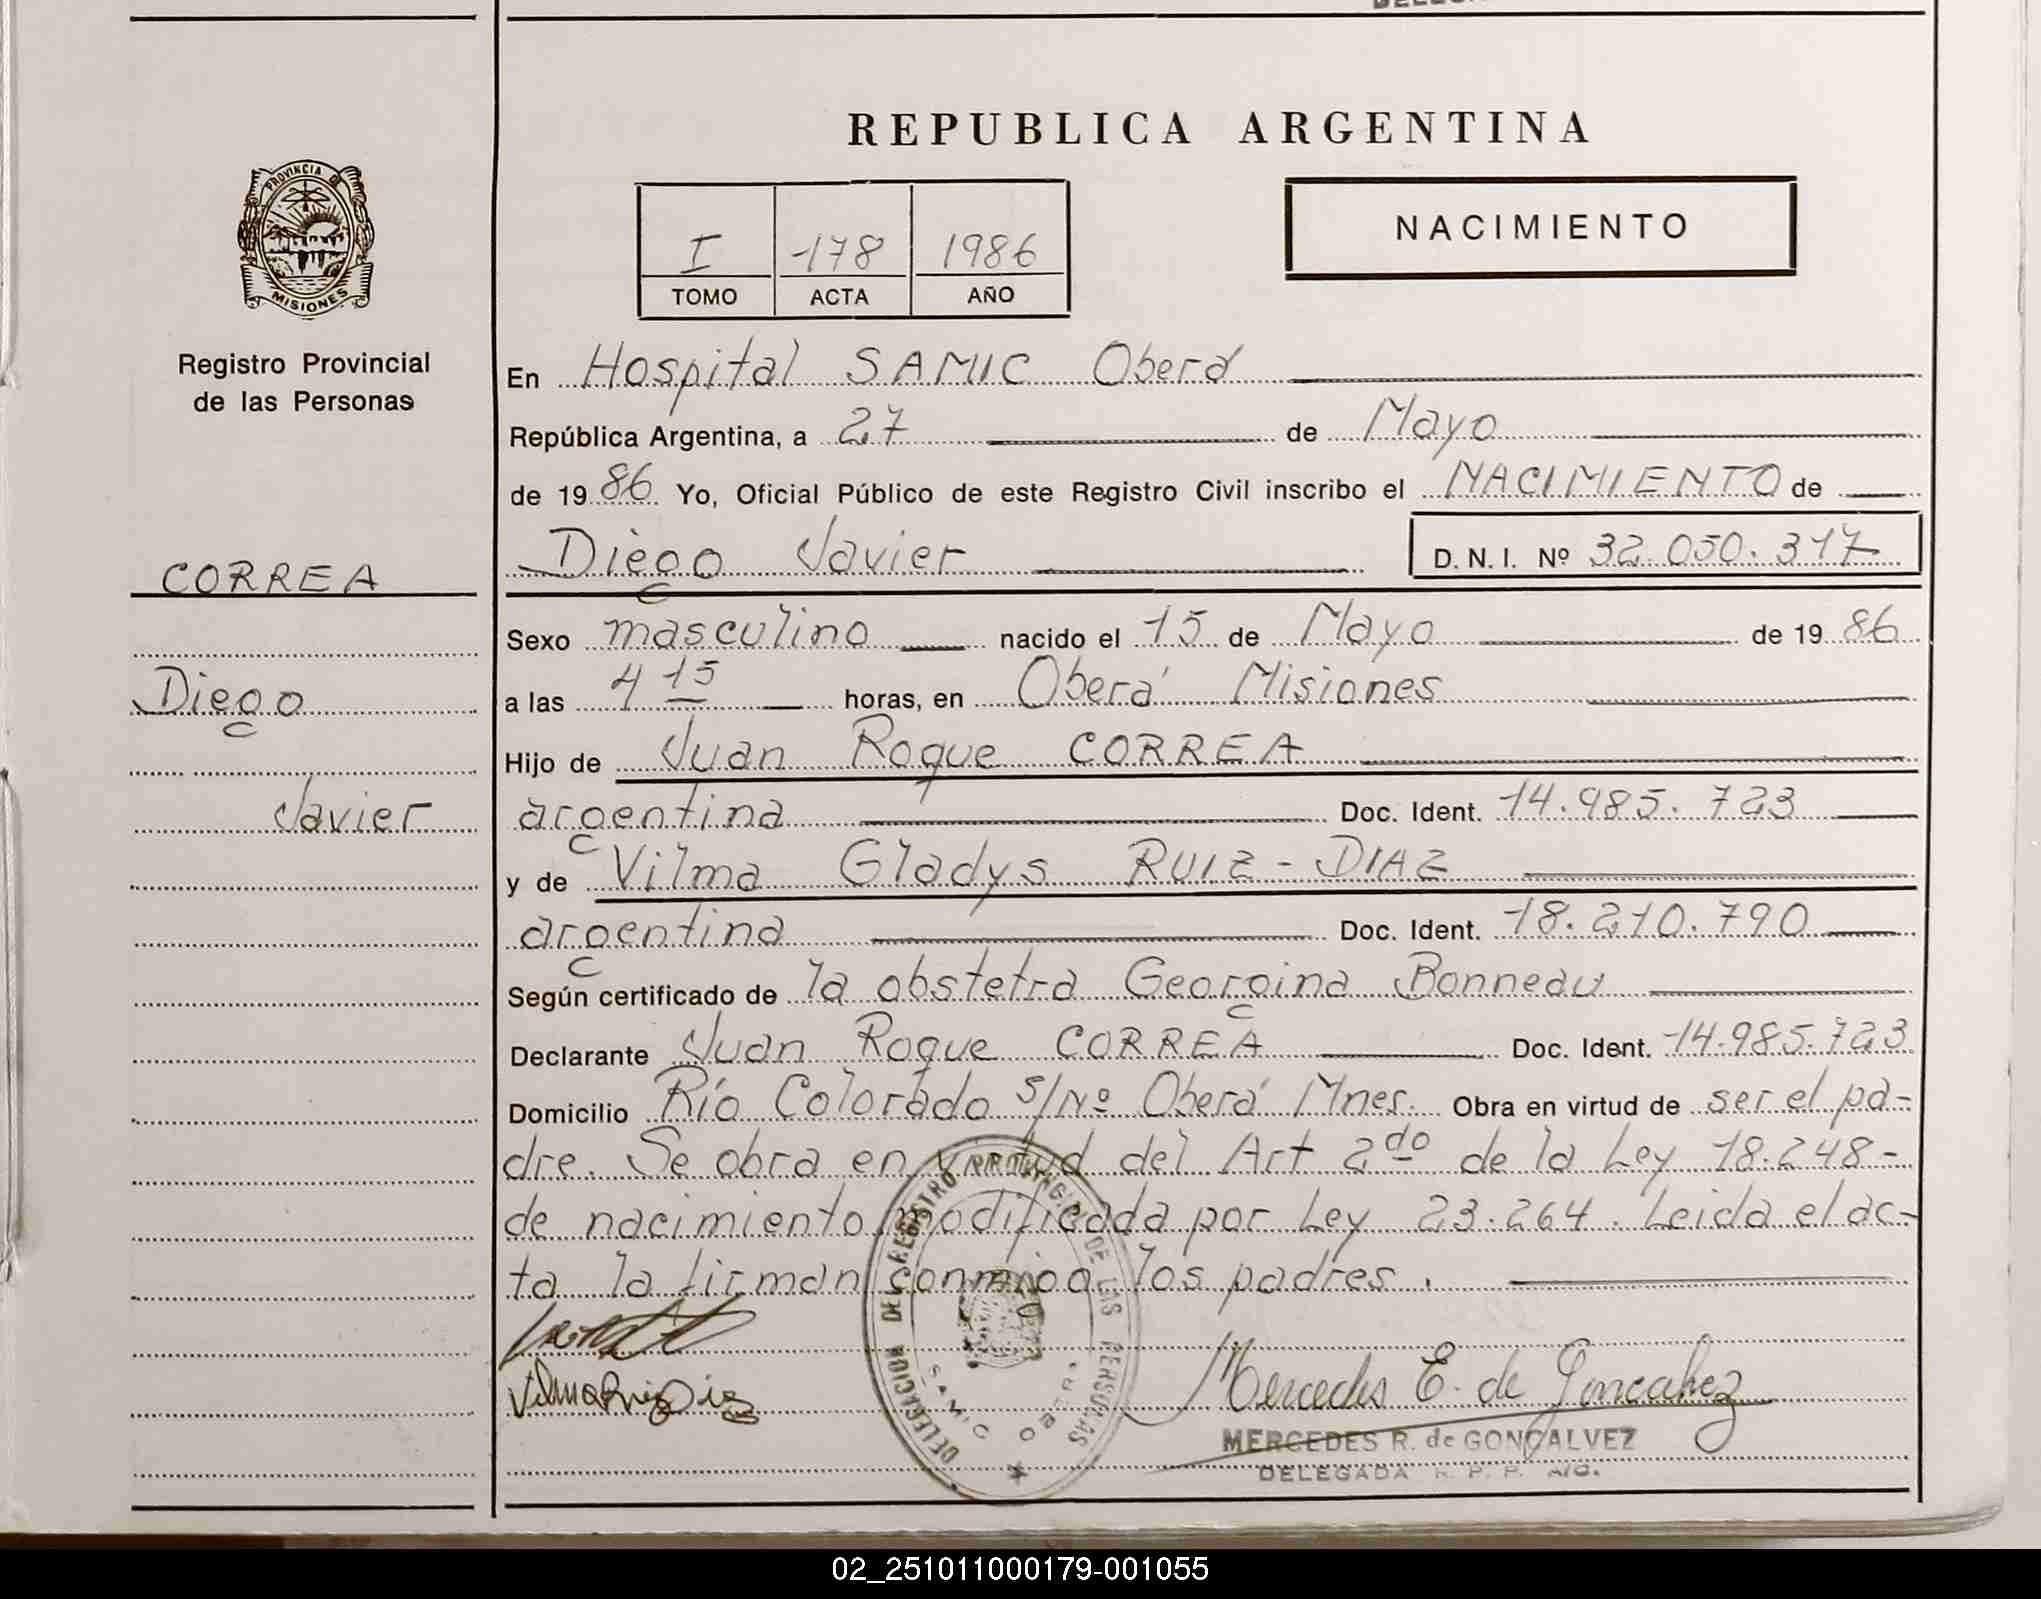 REPUBLICA ARGENTINA
PROVINCIA DE
MISIONES
Registro Provincial
de las Personas
I 178 1986
TOMO ACTA AÑO
NACIMIENTO
En Hospital SAMIC Oberá
República Argentina, a 27 de Mayo
de 1986 Yo, Oficial Público de este Registro Civil inscribo el NACIMIENTO de
Diego Javier D.N.I. Nº 32.050.317
CORREA
Diego
Javier
Sexo masculino nacido el 15 de Mayo de 1986
a las 4 15 horas, en Oberá Misiones
Hijo de Juan Roque CORREA
argentina Doc. Ident. 14.985.723
y de Vilma Gladys RUIZ-DIAZ
argentina Doc. Ident. 18.210.790
Según certificado de la obstetra Georgina Bonneau
Declarante Juan Roque CORREA Doc. Ident. 14.985.723
Domicilio Río Colorado s/Nº Oberá Mnes. Obra en virtud de ser el pa-
dre. Se obra en virtud del Art 2do de la Ley 18.248-
de nacimiento modificada por Ley 23.264. Leida el ac-
ta la firman conmigo los padres.
Vilma Ruiz Diaz
DELEGACION DEL REGISTRO PROVINCIAL DE LAS PERSONAS
SAMIC OBERA
Mercedes E. de Goncalvez
MERCEDES R. de GONÇALVEZ
DELEGADA R. P. P.
02_251011000179-001055